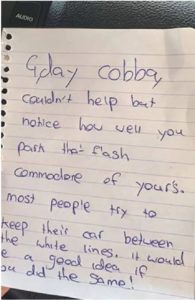 AUDIO
G,day cobba,
couldn't help but
notice how well you
park that flash
commodore of yours.
most people try to
keep their car between
the white lines. it would
e a good idea if
ou did the same!